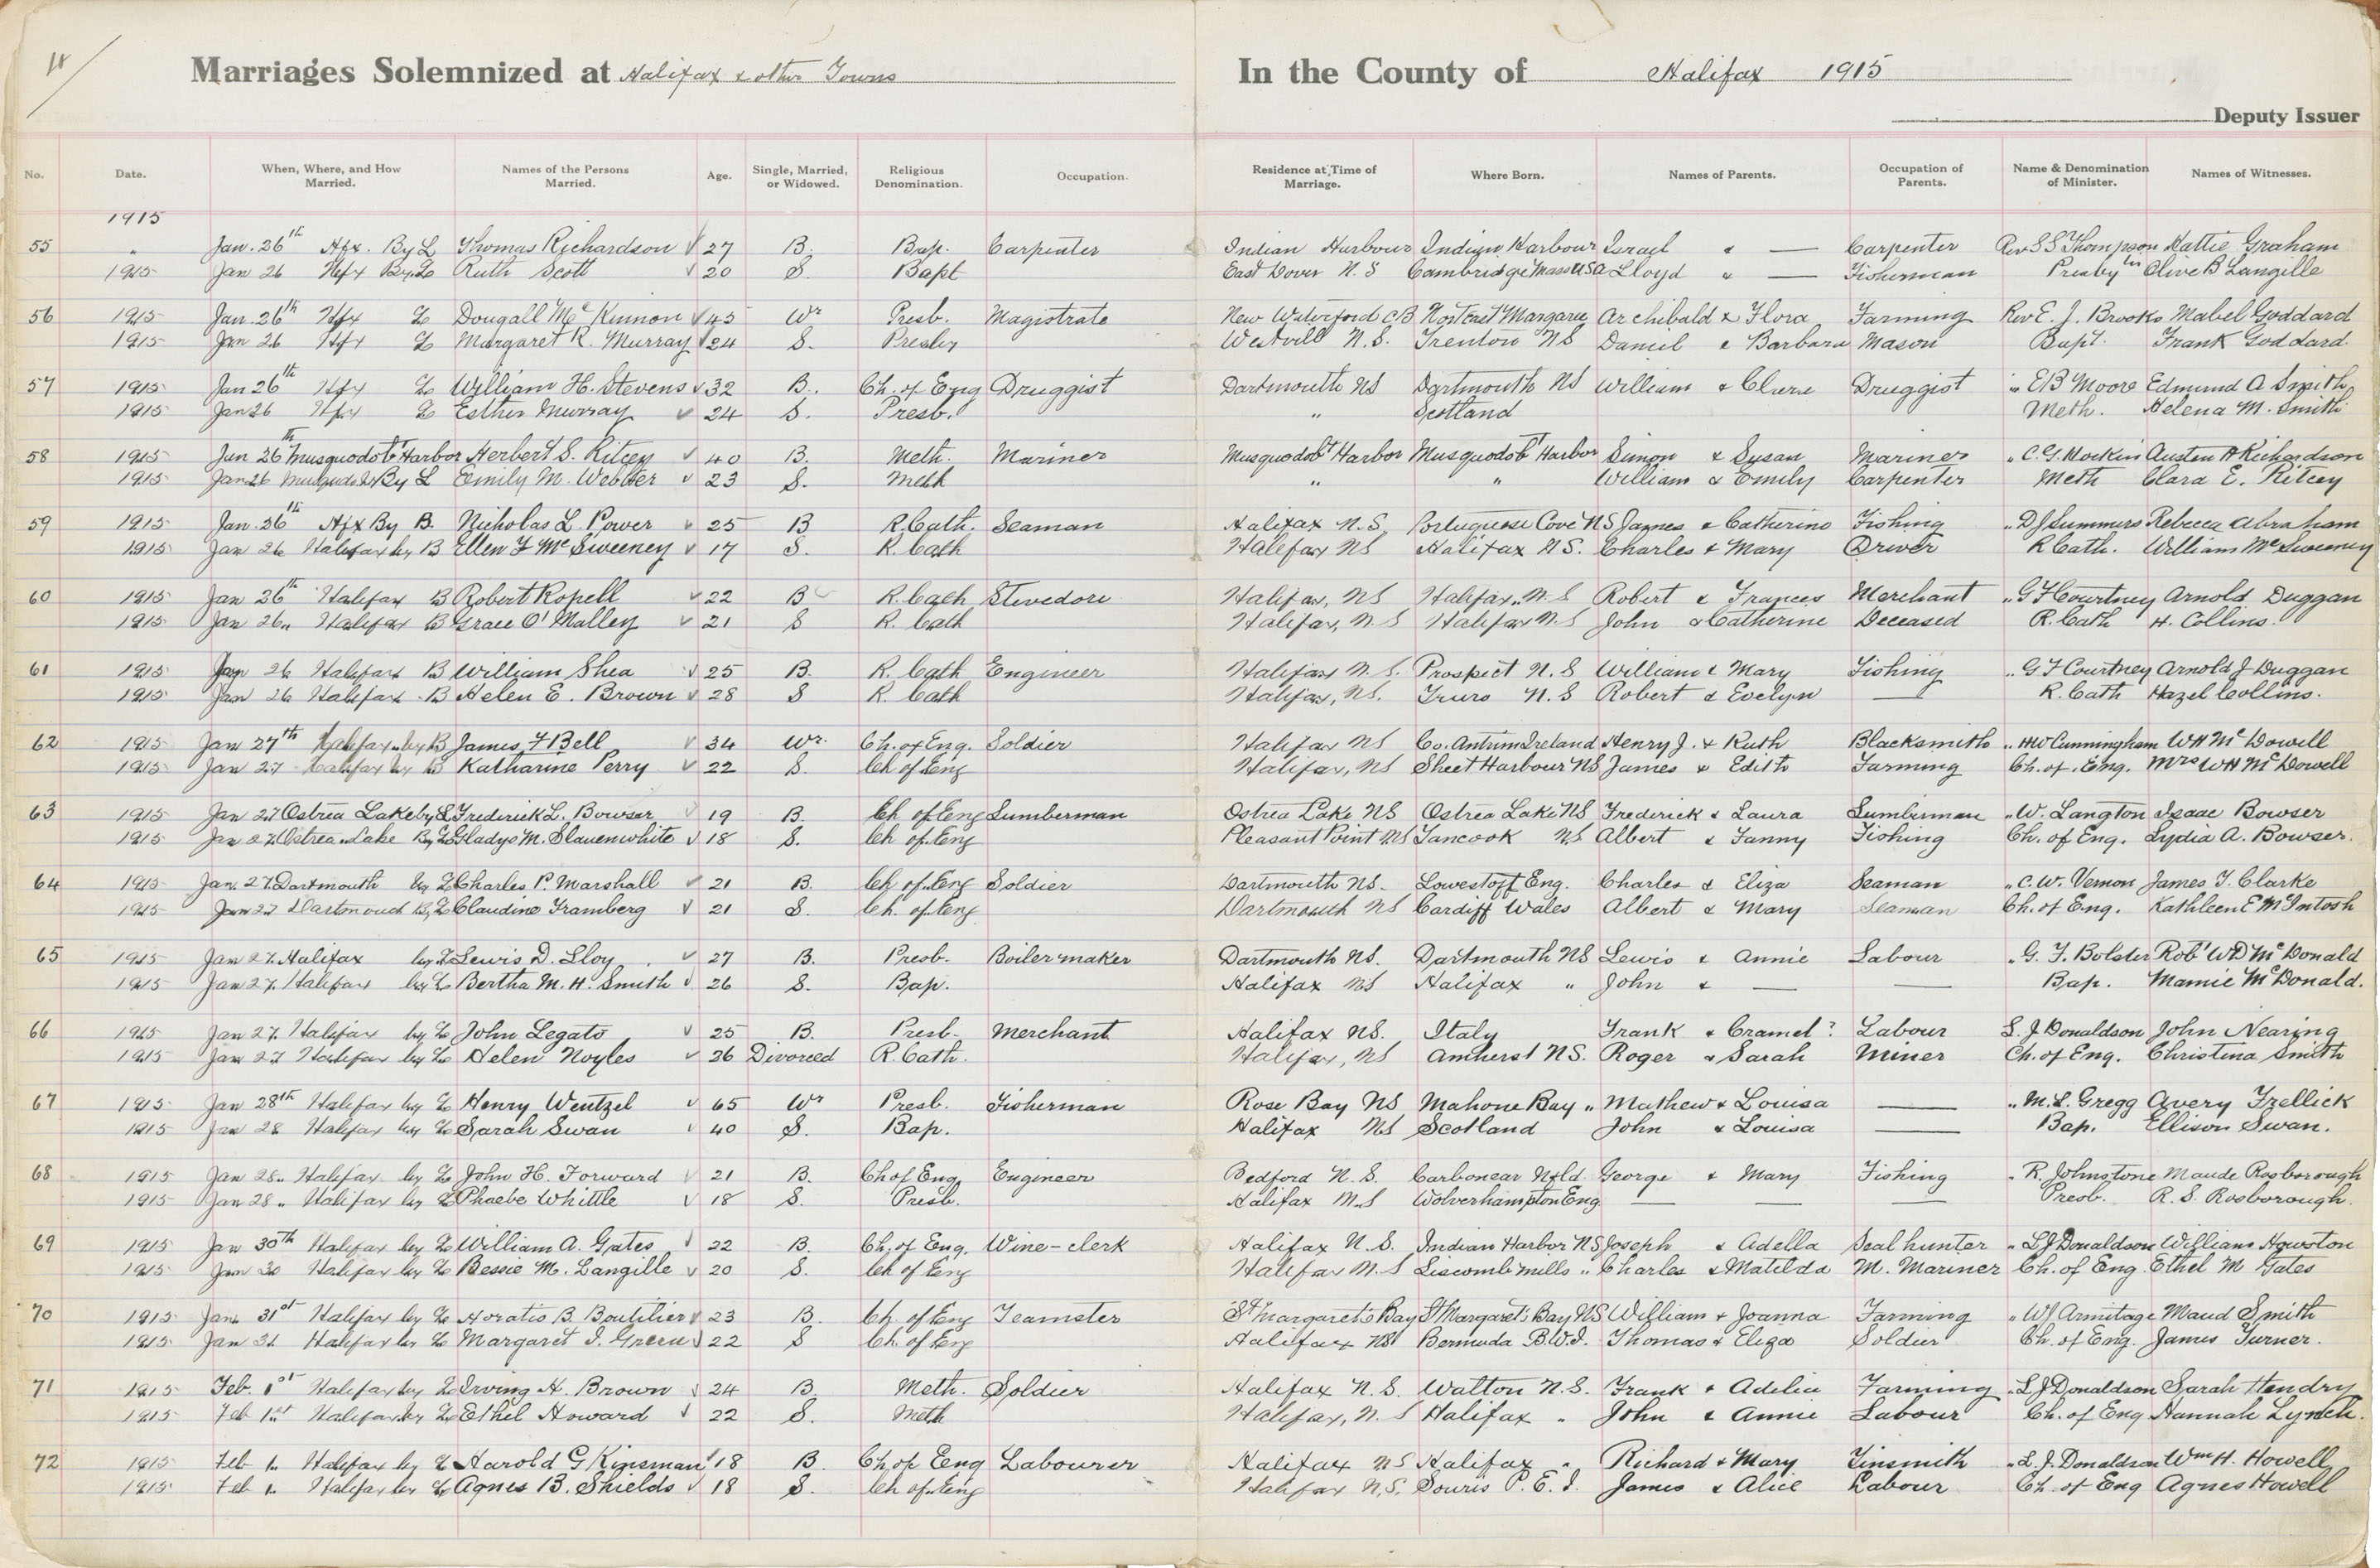 14
Marriages Solemnized at Halifax & other Towns In the County of Halifax 1915
Deputy Issuer
No. Date. When, Where, and How Married. Names of the Persons Married. Age. Single, Married, or Widowed. Religious Denomination. Occupation. Residence at Time of Marriage. Where Born. Names of Parents. Occupation of Parents. Name & Denomination of Minister. Names of Witnesses.
1915
55 " Jan. 26th Hfx. By L Thomas Richardson 27 B. Bap. Carpenter Indian Harbour Indian Harbour Israel & — Carpenter Rev S S Thompson Hattie Graham
1915 Jan 26 Hfx By Lc Ruth Scott 20 S. Bapt East Dover N.S Cambridge Mass USA Lloyd & — Fisherman Presbytn Olive B Langille
56 1915 Jan. 26th Hfx Lc Dougall McKinnon 45 Wr Presb. Magistrate New Waterford CB NortEast Margaree Archibald & Flora Farming Rev E. J. Brooks Mabel Goddard
1915 Jan 26 Hfx Lc Margaret R. Murray 24 S. Presby Westvill N.S. Trenton NS Daniel & Barbara Mason Bapt. Frank Goddard
57 1915 Jan 26th Hfx Lc William H. Stevens 32 B. Ch. of Eng Druggist Dartmouth NS Dartmouth NS William & Clara Druggist " E B Moore Edmund A Smith
1915 Jan 26 Hfx Lc Esther Murray 24 S. Presb. " Scotland Meth. Helena M. Smith
58 1915 Jan 26th Musquodobt Harbor Herbert S. Ritcey 40 B. Meth. Mariner Musquodobt Harbor Musquodobt Harbor Simon & Susan Mariner " C. G. Hockin Austen A Richardson
1915 Jan 26 By L Emily M. Webber 23 S. Meth " " William & Emily Carpenter Meth Clara E. Ritcey
59 1915 Jan. 26th Hfx By B. Nicholas L. Power 25 B R. Cath. Seaman Halifax N.S. Portuguese Cove NS James & Catherine Fishing " D J Summers Rebecca Abraham
1915 Jan 26 Halifax by B Ellen F McSweeney 17 S. R. Cath Halifax NS Halifax N.S. Charles & Mary Driver R Cath. William McSweeney
60 1915 Jan 26th Halifax B Robert Kopell 22 B R. Cath Stevedore Halifax, NS Halifax, N.S Robert & Frances Merchant " G F Courtney Arnold Duggan
1915 Jan 26 Halifax B Grace O'Malley 21 S R. Cath Halifax, N.S Halifax N.S John & Catherine Deceased R. Cath H. Collins.
61 1915 Jan 26 Halifax B William Shea 25 B. R. Cath Engineer Halifax N.S. Prospect N.S William & Mary Fishing " G F Courtney Arnold J Duggan
1915 Jan 26 Halifax B Helen E. Brown 28 S R. Cath Halifax, NS. Truro N.S Robert & Evelyn — R. Cath Hazel Collins.
62 1915 Jan 27th Halifax by B James F Bell 34 Wr. Ch. of Eng. Soldier Halifax NS Co. Antrim Ireland Henry J. & Ruth Blacksmith " HW Cunningham WH McDowell
1915 Jan 27 Halifax by B Katharine Perry 22 S. Ch of Eng Halifax, NS Sheet Harbour NS James & Edith Farming Ch. of Eng. Mrs WH McDowell
63 1915 Jan 27 Ostrea Lake by L Frederick L. Bowser 19 B. Ch of Eng Lumberman Ostrea Lake NS Ostrea Lake NS Frederick & Laura Lumberman " W. Langton Isaac Bowser
1915 Jan 27 Ostrea Lake By Lc Gladys M. Slauenwhite 18 S. Ch of Eng Pleasant Point NS Tancook NS Albert & Fanny Fishing Ch. of Eng. Lydia A. Bowser.
64 1915 Jan. 27 Dartmouth by L Charles P. Marshall 21 B. Ch of Eng Soldier Dartmouth NS. Lowestoft Eng. Charles & Eliza Seaman " C. W. Vernon James T. Clarke
1915 Jan 27 Dartmouth By Lc Claudine Framberg 21 S. Ch. of Eng Dartmouth NS Cardiff Wales Albert & Mary Seaman Ch. of Eng. Kathleen E McIntosh
65 1915 Jan 27 Halifax by L Lewis D. Lloy 27 B. Presb. Boilermaker Dartmouth NS. Dartmouth NS Lewis & Annie Labour " G. F. Bolster Robt WD McDonald
1915 Jan 27. Halifax by Lc Bertha M. H. Smith 26 S. Bap. Halifax NS Halifax " John & — — Bap. Mamie McDonald.
66 1915 Jan 27. Halifax by Lc John Legato 25 B. Presb. Merchant Halifax NS. Italy Frank & Cramel? Labour L. J Donaldson John Nearing
1915 Jan 27 Halifax by Lc Helen Noyles 26 Divorced R. Cath. Halifax, NS Amherst NS. Roger & Sarah Miner Ch. of Eng. Christina Smith
67 1915 Jan 28th Halifax by Lc Henry Wentzel 65 Wr Presb. Fisherman Rose Bay NS Mahone Bay " Mathew & Louisa — " M. L. Gregg Avery Frellick
1915 Jan 28 Halifax by Lc Sarah Swan 40 S. Bap. Halifax NS Scotland John & Louisa — Bap. Ellison Swan.
68 1915 Jan 28 Halifax by Lc John H. Forward 21 B. Ch of Eng. Engineer Bedford N.S. Carbonear Nfld. George & Mary Fishing " R. Johnstone Maude Rosborough
1915 Jan 28 " Halifax by Lc Phaebe Whittle 18 S. Presb. Halifax N.S Wolverhampton Eng. — — — Presb. R. S. Rosborough.
69 1915 Jan 30th Halifax by Lc William A. Gates 22 B. Ch. of Eng. Wine-clerk Halifax N.S. Indian Harbor NS Joseph & Adella Seal hunter " L J Donaldson William Houston
1915 Jan 30 Halifax by Lc Bessie M. Langille 20 S. Ch of Eng Halifax N.S Liscomb Mills " Charles & Matilda M. Mariner Ch. of Eng. Ethel M Gates
70 1915 Jan 31st Halifax by Lc Horatio B. Boutilier 23 B. Ch. of Eng Teamster St Margarets Bay St Margaret's Bay NS William & Joanna Farming " W J Armitage Maud Smith
1915 Jan 31 Halifax by Lc Margaret I. Green 22 S Ch. of Eng Halifax NS Bermuda B.W.I. Thomas & Eliza Soldier Ch. of Eng. James Turner.
71 1915 Feb. 1st Halifax by Lc Irving H. Brown 24 B. Meth. Soldier Halifax N.S. Walton N.S. Frank & Adelia Farming " L J Donaldson Sarah Hendry
1915 Feb 1st Halifax by Lc Ethel Howard 22 S. Meth Halifax, N.S Halifax " John & Annie Labour Ch. of Eng Hannah Lynch.
72 1915 Feb 1 Halifax by L Harold G Kinsman 18 B. Ch of Eng Labourer Halifax NS Halifax " Richard & Mary Tinsmith " L. J. Donaldson Wm H. Howell
1915 Feb 1 Halifax by Lc Agnes B. Shields 18 S. Ch of Eng Halifax N.S. Souris P.E.I. James & Alice Labour Ch of Eng Agnes Howell